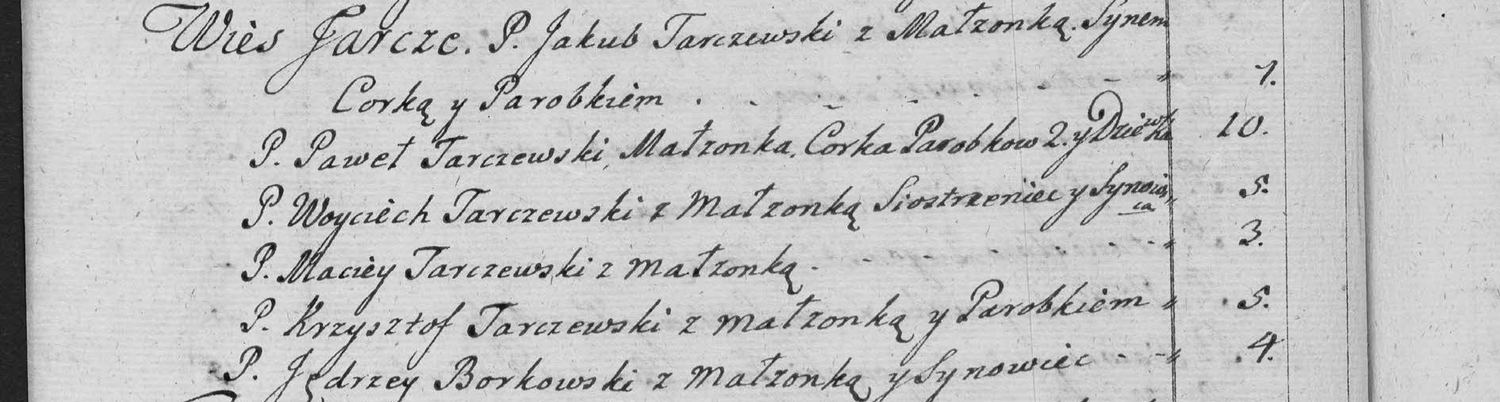 Wies Jarcze. P. Jakub Tarczewski z Małzonką. Synem
Corką y Parobkiem . - - - - „ 7.
P. Paweł Tarczewski, Małzonka, Corka Parobkow 2. y Dziewka 10.
P. Woyciech Tarczewski z Małzonką Siostrzeniec y Synowica „ 5.
P. Maciey Tarczewski z Małzonką . - - - „ 3.
P. Krzysztof Tarczewski z Małzonką y Parobkiem „ 5.
P. Jędrzey Borkowski z Małzonką y Synowiec - - „ 4.